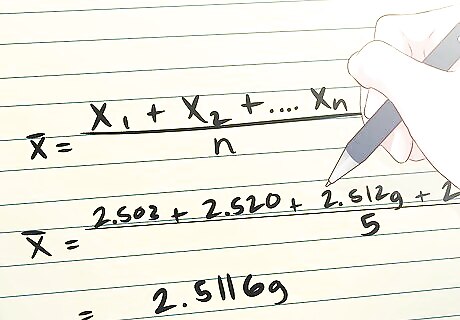 X̄ = X₁ + X₂ + .... Xₙ / n
X̄ = 2.502 + 2.520 + 2.512g + 2 / 5
= 2.5116g